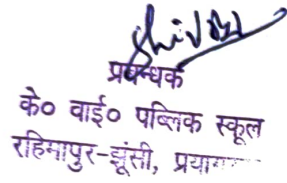 प्रबन्धक
के० वाई० पब्लिक स्कूल
रहिमापुर-झूंसी,